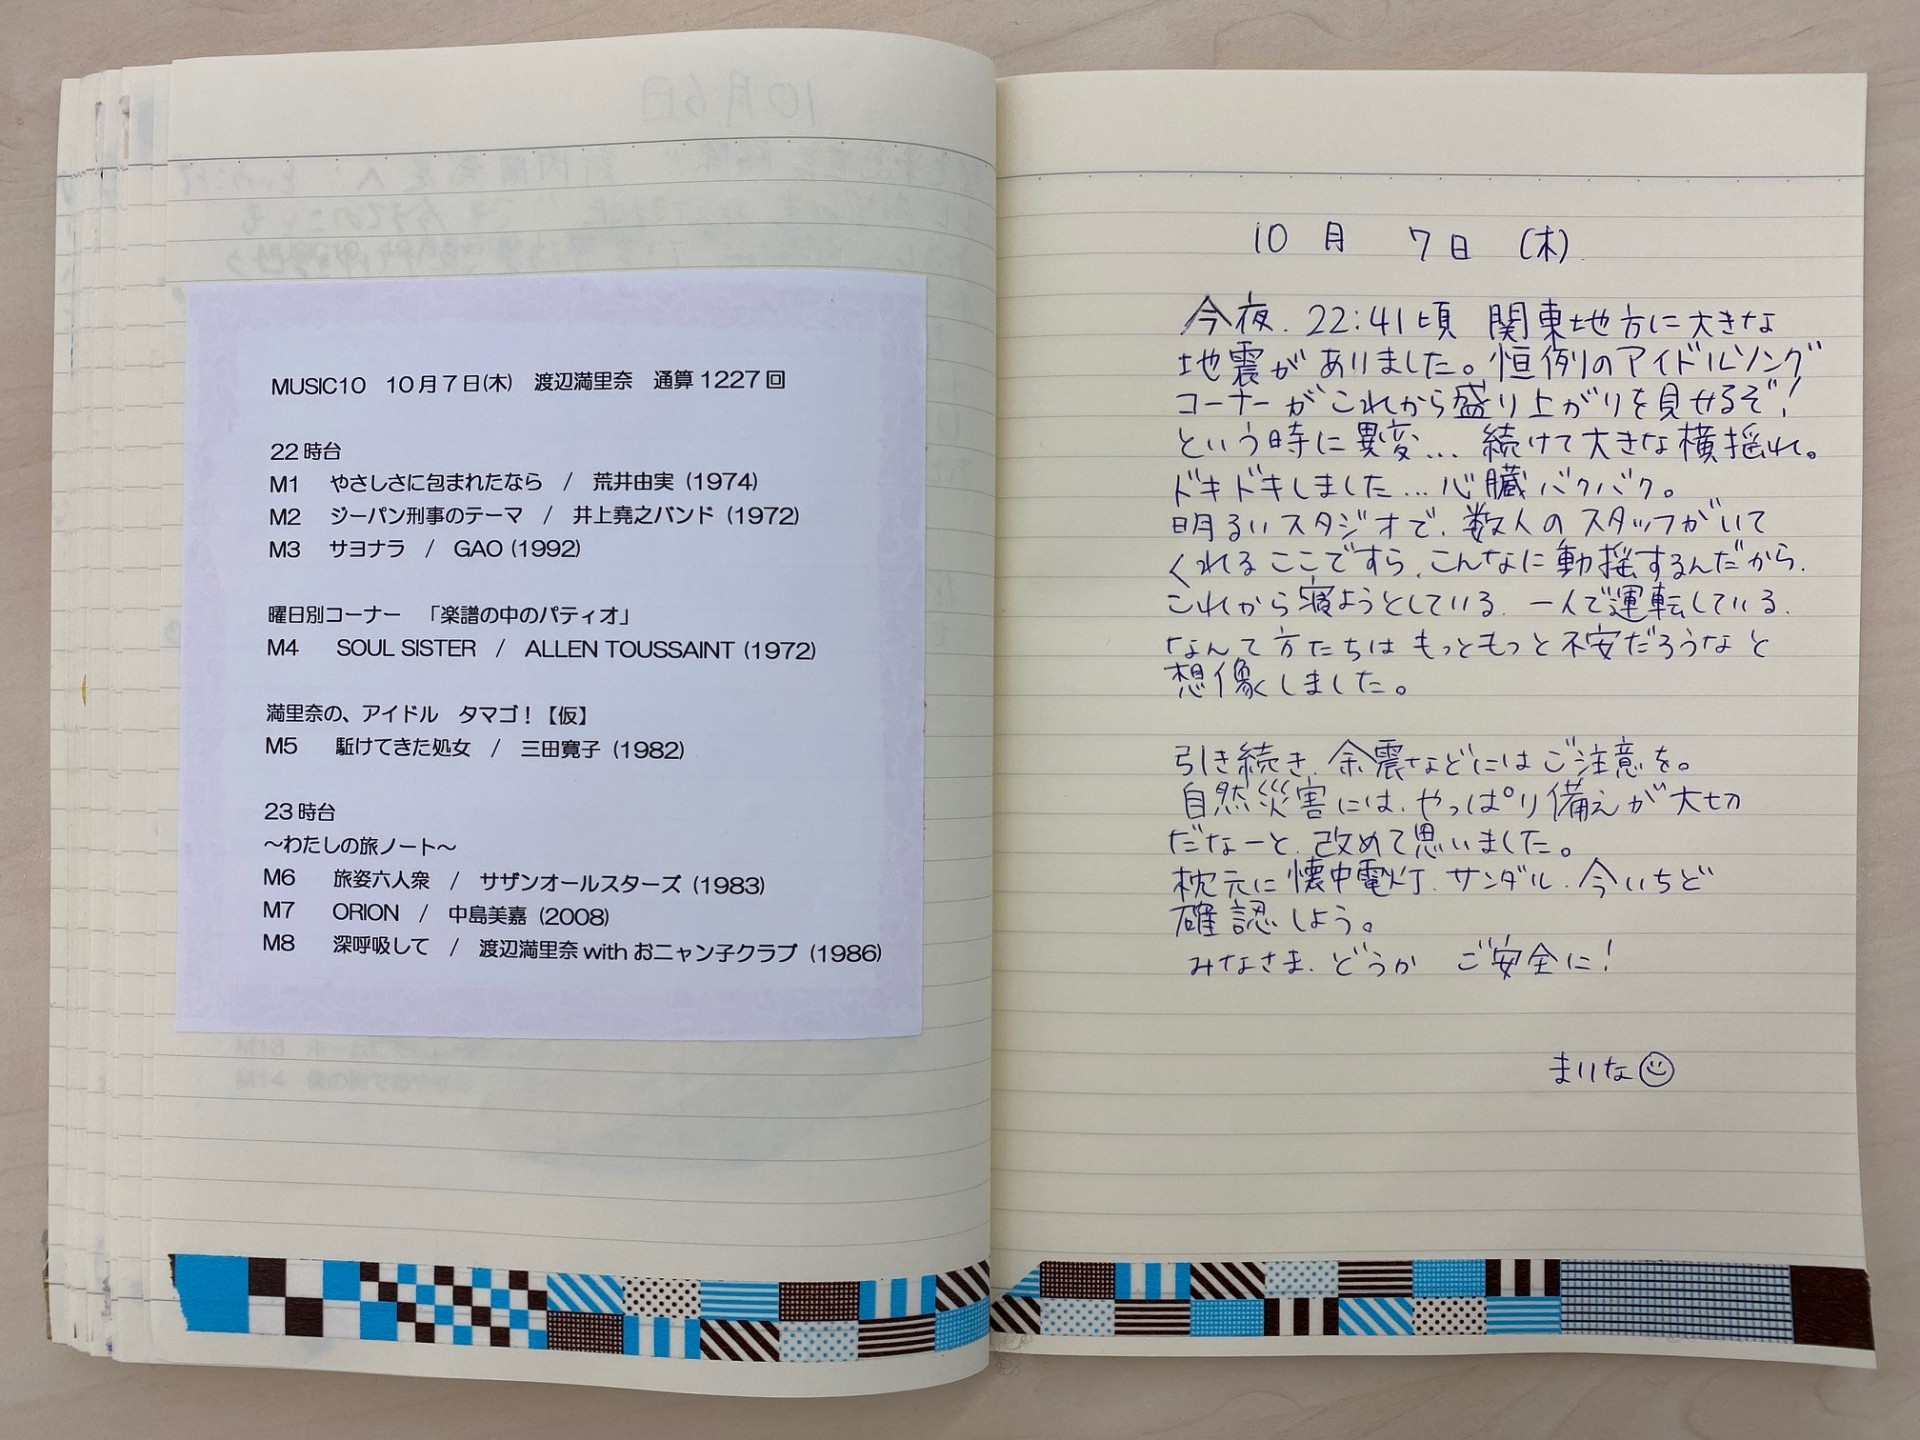 MUSIC10 10月7日(木) 渡辺満里奈 通算1227回
22時台
M1 やさしさに包まれたなら / 荒井由実 (1974)
M2 ジーパン刑事のテーマ / 井上堯之バンド (1972)
M3 サヨナラ / GAO (1992)
曜日別コーナー 「楽譜の中のパティオ」
M4 SOUL SISTER / ALLEN TOUSSAINT (1972)
満里奈の、アイドル タマゴ！【仮】
M5 駈けてきた処女 / 三田寛子 (1982)
23時台
～わたしの旅ノート～
M6 旅姿六人衆 / サザンオールスターズ (1983)
M7 ORION / 中島美嘉 (2008)
M8 深呼吸して / 渡辺満里奈 with おニャン子クラブ (1986)
10月 7日 (木)
今夜、22:41頃 関東地方に大きな
地震がありました。恒例のアイドルソング
コーナーがこれから盛り上がりを見せるぞ！
という時に異変… 続けて大きな横揺れ。
ドキドキしました…心臓バクバク。
明るいスタジオで、数人のスタッフがいて
くれるここですら、こんなに動揺するんだから、
これから寝ようとしている、一人で運転している、
なんて方たちはもっともっと不安だろうなと
想像しました。
引き続き、余震などにはご注意を。
自然災害には、やっぱり備えが大切
だなーと、改めて思いました。
枕元に懐中電灯、サンダル、今いちど
確認しよう。
みなさま、どうか ご安全に！
まりな